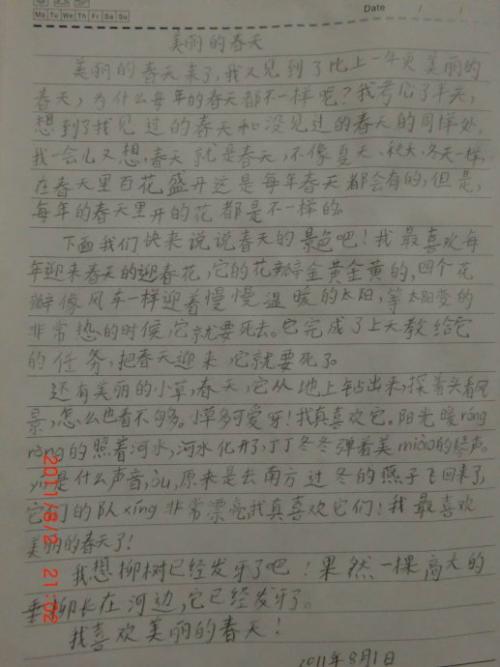 Mo Tu We Th Fr Sa Su
Date / /
美丽的春天
美丽的春天来了,我又见到了比上一年更美丽的
春天,为什么每年的春天都不一样呢?我考虑了半天,
想到了我见过的春天和没见过的春天的同样处,
我一会儿又想,春天就是春天,不像夏天、秋天、冬天一样,
在春天里百花盛开这是每年春天都会有的,但是,
每年的春天里开的花都是不一样的。
下面我们快来说说春天的景色吧!我最喜欢每
年迎来春天的迎春花,它的花瓣金黄金黄的,四个花
瓣像风车一样迎着慢慢温暖的太阳,等太阳变的
非常热的时候,它就要死去。它完成了上天教给它
的任务,把春天迎来,它就要死了。
还有美丽的小草,春天,它从地上钻出来,探着头看风
景,怎么也看不够。小草多可爱牙!我真喜欢它。阳光暖róng
róng的照着河水,河水化开了,丁丁冬冬弹着美miào的琴声。
yí是什么声音,òu,原来是去南方过冬的燕子飞回来了,
它们的队xíng非常漂亮,我真喜欢它们!我最喜欢
美丽的春天了!
我想柳树已经发牙了吧!果然一棵高大的
垂柳长在河边,它已经发牙了。
我喜欢美丽的春天!
2011年8月1日
2011/8/2 21:02